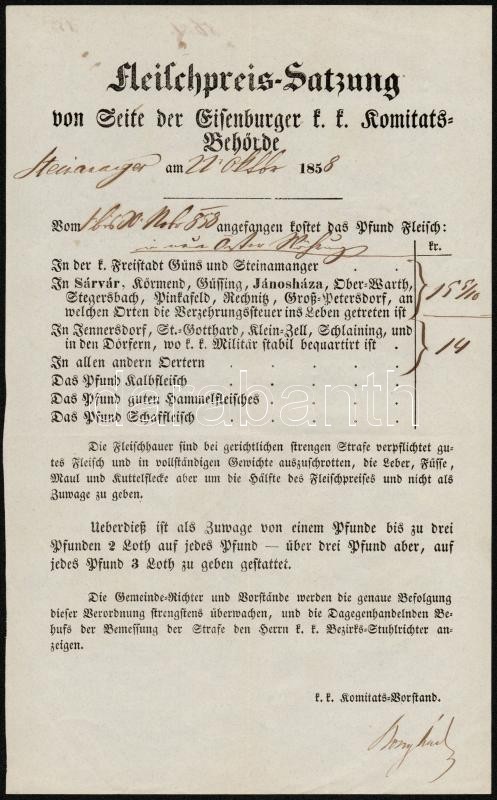 Fleischpreis-Satzung
von Seite der Eisenburger k. k. Komitats-
Behörde
Steinamanger am 22. Oktbr 1858
Vom 1. bis 30. Nobr 858 angefangen kostet das Pfund Fleisch:
in neuer Oester Währung
kr.
In der k. Freistadt Güns und Steinamanger . .
In Sárvár, Körmend, Güssing, Jánosháza, Ober-Warth,
Stegersbach, Pinkafeld, Rechnitz, Groß-Petersdorf, an
welchen Orten die Verzehrungssteuer ins Leben getreten ist
15 5/10
In Jennersdorf, St.-Gotthard, Klein-Zell, Schlaining, und
in den Dörfern, wo k. k. Militär stabil bequartirt ist .
14
In allen andern Oertern . . . . .
Das Pfund Kalbfleisch . . . . .
Das Pfund guten Hammelfleisches . . . .
Das Pfund Schaffleisch . . . . .
Die Fleischhauer sind bei gerichtlichen strengen Strafe verpflichtet gu-
tes Fleisch und in vollständigen Gewichte auszuschrotten, die Leber, Füsse,
Maul und Kuttelflecke aber um die Hälfte des Fleischpreises und nicht als
Zuwage zu geben.
Ueberdieß ist als Zuwage von einem Pfunde bis zu drei
Pfunden 2 Loth auf jedes Pfund — über drei Pfund aber, auf
jedes Pfund 3 Loth zu geben gestattet.
Die Gemeinde-Richter und Vorstände werden die genaue Befolgung
dieser Verordnung strengstens überwachen, und die Dagegenhandelnden Be-
hufs der Bemessung der Strafe den Herrn k. k. Bezirks-Stuhlrichter an-
zeigen.
k. k. Komitats-Vorstand.
darabanth